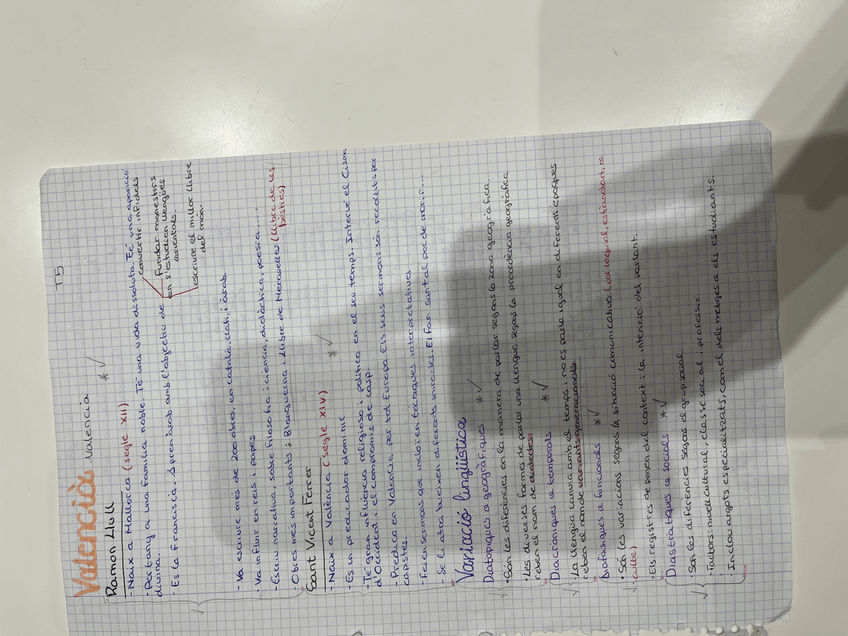 T5
Valencià Valencià
Ramon Llull
- Naix a Mallorca (segle XII)
- Pertany a una família noble. Té una vida dissoluta. Té una aparició
divina.
- Es fa franciscà. Aprén àrab amb l'objectiu de
convertir infidels
Fundar monestirs
on s'estudien llengües
orientals.
escriure el millor llibre
del món.
- Va escriure més de 200 obres, en català, llatí, i àrab.
- Va influir en reis i papes
- Escriu narrativa, sobre filosofia i ciència, didàctica, poesia....
- Obres més importants: Blanquerna i Llibre de Meravelles (Llibre de les
bèsties)
Sant Vicent Ferrer
- Naix a València (segle XIV)
- És un predicador dominic
- Té gran influència religiosa i política en el seu temps. Intervé el Cisma
d'Occident i el compromís de Casp
- Predica en Valencia i per tot Europa. Els seus sermons són recollits per
copistes.
- Feien sermons que incloïen tècniques interpretatives
- Se li atribueixen diferents miracles. El fan sant al poc de morir....
Variació lingüística
Diatòpiques o geogràfiques
- Són les diferències en la manera de parlar segons la zona geogràfica.
- Les diverses formes de parlar una llengua segons la procedència geogràfica
reben el nom de dialectes.
Diacròniques o temporals
- La llengua canvia amb el temps i no es parla igual en diferents èpoques
reben el nom de variants generacionals
Diafàsiques o funcionals
- Són les variacions segons la situació comunicativa (col·loquial, estàndard, o
culte)
- Els registres depenen del context i la intenció del parlant.
Diastràtiques o socials
- Són les diferències segons el grup social.
- Factors: nivell cultural, classe social i professió.
- Inclou argots especialitzats, com el dels metges o els estudiants.